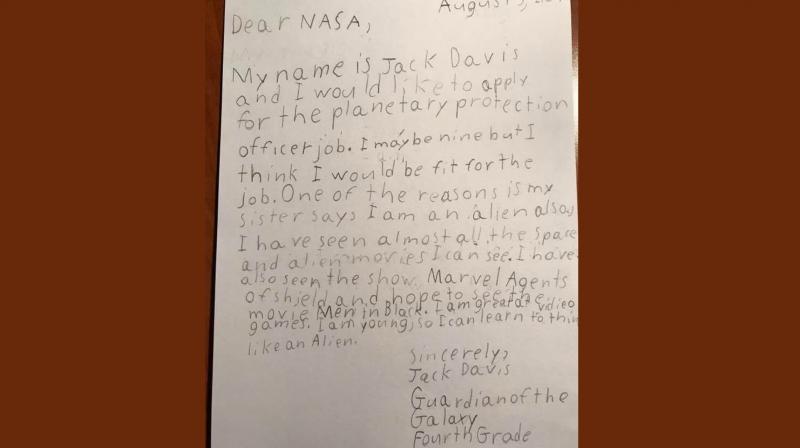 August
Dear NASA,
My name is Jack Davis
and I would like to apply
for the planetary protection
officer job. I may be nine but I
think I would be fit for the
job. One of the reasons is my
sister says I am an alien also,
I have seen almost all the space
and alien movies I can see. I have
also seen the show Marvel Agents
of shield and hope to see the
movie Men in Black. I am great at vidieo
games. I am young, so I can learn to thin
like an Alien.
Sincerely,
Jack Davis
Guardian of the
Galaxy
Fourth Grade